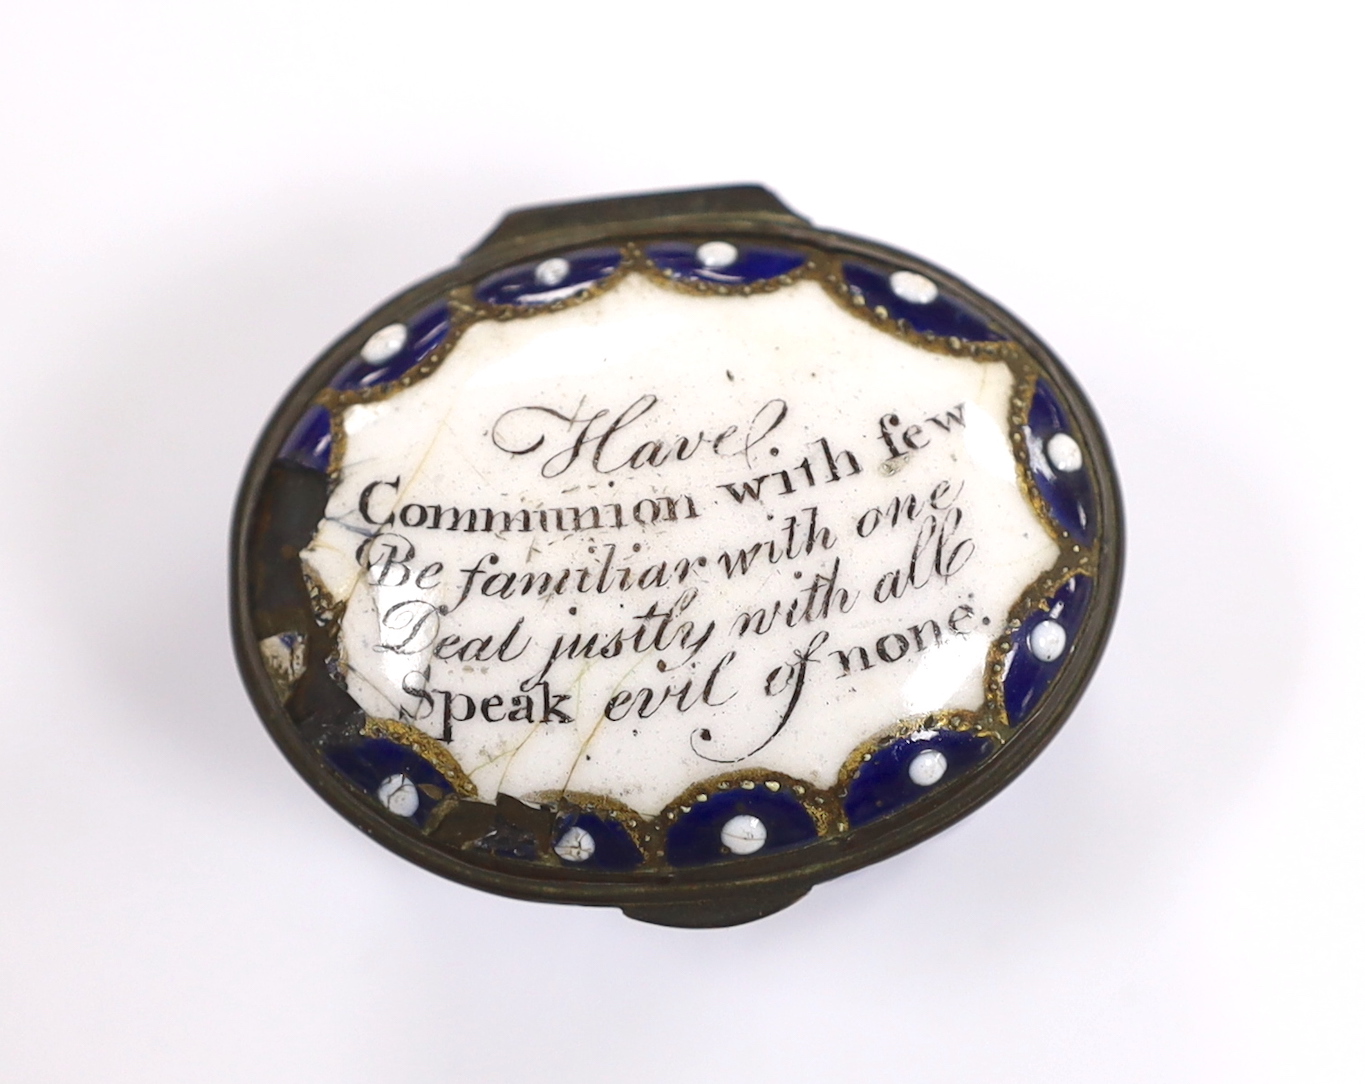 Have
Communion with few
Be familiar with one
Deal justly with all
Speak evil of none.